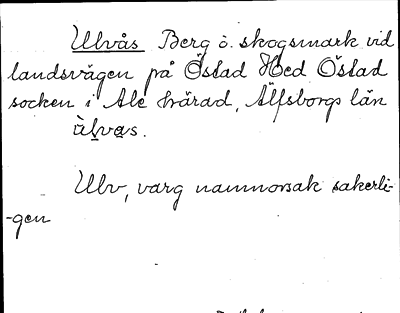 Ulvås Berg o. skogsmark vid
landsvägen på Östad Hed Östad
socken i Ale härad, Älfsborgs län
àlvas.
Ulv, varg namnorsak sakerli-
-gen